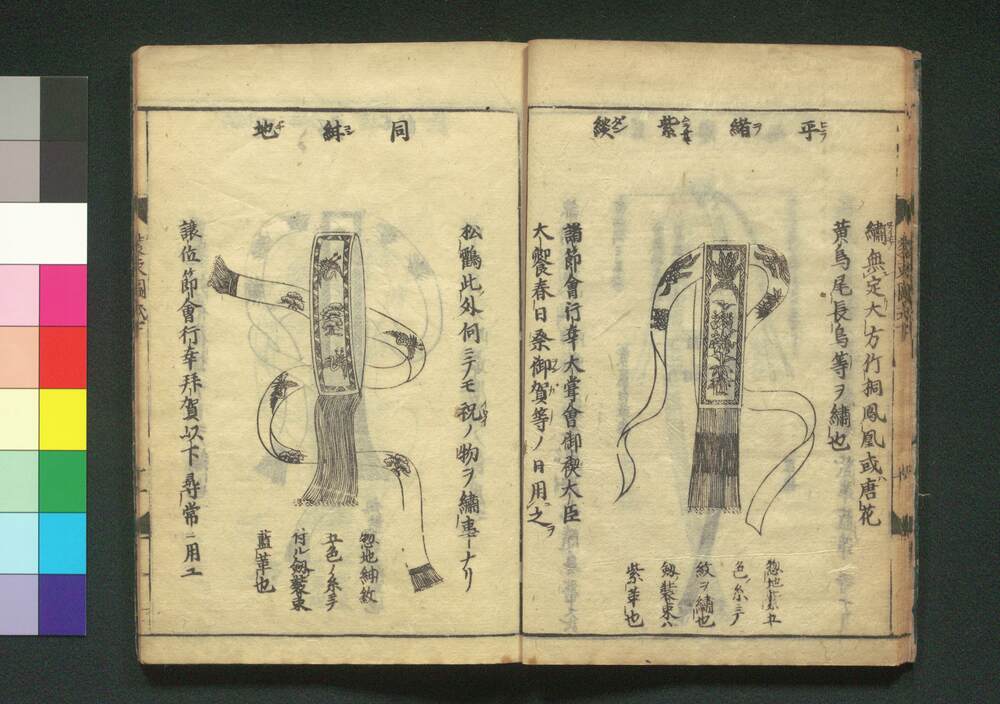 平緒 紫緂
繡無定大方竹桐鳳凰或唐花
黄鳥尾長鳥等ヲ繡也
惣地紫五
色ノ糸ニテ
紋ヲ繡也
劔装束ハ
紫革也
諸節會行幸大嘗會御禊大臣
大饗春日祭御賀等ノ日用之ヲ
同 紺地
松鶴此外何ニテモ祝ノ物ヲ繡事ナリ
惣地紺紋
五色ノ糸ニテ
付ル劔装束
藍革也
譲位節會行幸拜賀以下尋常ニ用エ